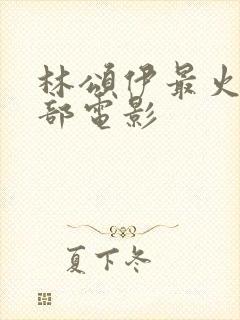 林頌伊最火
部電影
夏下冬